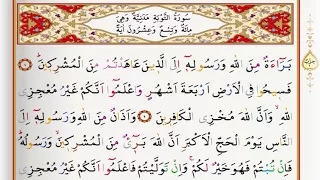 سُورَةُ التَّوْبَةِ مَدَنِيَّةٌ وَهِيَ
مِائَةٌ وَتِسْعٌ وَعِشْرُونَ اٰيَةً
بَرَٓاءَةٌ مِنَ اللّٰهِ وَرَسُولِهِٓ اِلَى الَّذ۪ينَ عَاهَدْتُمْ مِنَ الْمُشْرِك۪ينَۜ
فَس۪يحُوا فِي الْاَرْضِ اَرْبَعَةَ اَشْهُرٍ وَاعْلَمُٓوا اَنَّكُمْ غَيْرُ مُعْجِزِي
اللّٰهِۙ وَاَنَّ اللّٰهَ مُخْزِي الْكَافِر۪ينَ وَاَذَانٌ مِنَ اللّٰهِ وَرَسُولِهِٓ اِلَى
النَّاسِ يَوْمَ الْحَجِّ الْاَكْبَرِ اَنَّ اللّٰهَ بَر۪ٓيءٌ مِنَ الْمُشْرِك۪ينَۙ وَرَسُولُهُۜ
فَاِنْ تُبْتُمْ فَهُوَ خَيْرٌ لَكُمْۚ وَاِنْ تَوَلَّيْتُمْ فَاعْلَمُٓوا اَنَّكُمْ غَيْرُ مُعْجِزِي